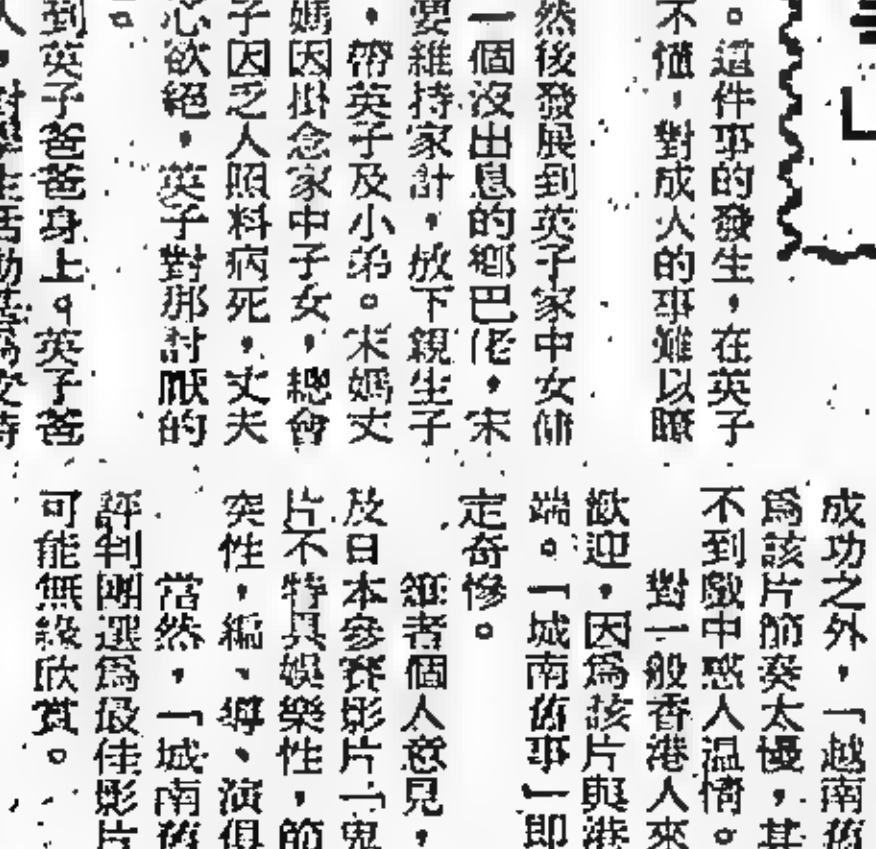 。這件事的發生,在英子
不懂,對成人的事難以瞭
然後發展到英子家中女傭
一個沒出息的鄉巴佬,宋
要維持家計,放下親生子
,帶英子及小弟。宋媽丈
媽因掛念家中子女,總會
子因乏人照料病死,丈夫
心欲絕,英子對那討厭的
。
到英子爸爸身上。英子爸
成功之外,「越南舊
爲該片節奏太慢,其
不到戲中惑人温情。
對一般香港人來
歡迎,因爲該片與港
端。「城南舊事」即
定奇慘。
筆者個人意見,
及日本參賽影片「鬼
片不特具娛樂性,節
突性,編、導、演俱
當然,「城南舊
評判團選爲最佳影片
可能無緣欣賞。